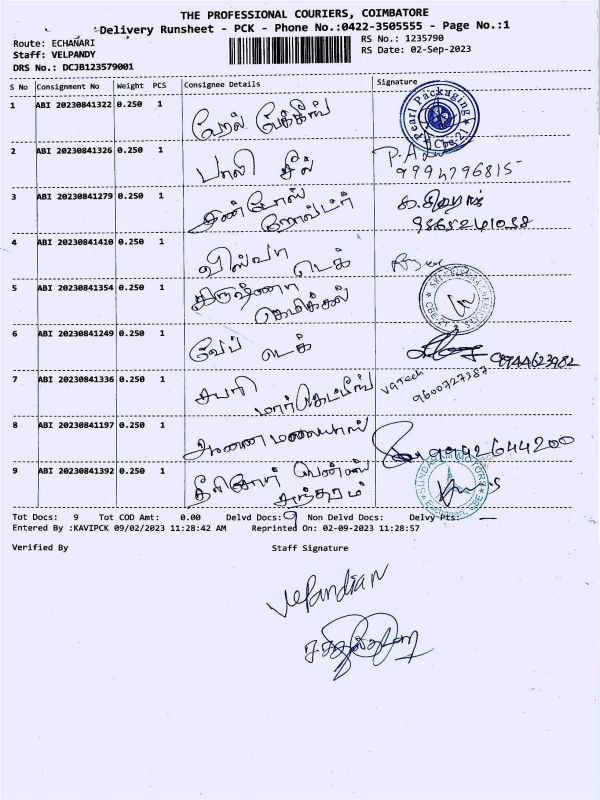 THE PROFESSIONAL COURIERS, COIMBATORE
Delivery Runsheet - PCK - Phone No.:0422-3505555 - Page No.:1
Route: ECHANARI
RS No.: 1235790
Staff: VELPANDY
RS Date: 02-Sep-2023
DRS No.: DCJB123579001
S No Consignment No Weight PCS Consignee Details Signature
1 ABI 20230841322 0.250 1 பேர்ல் பேக்கேஜிங் Pearl Packaging Cbe-21
2 ABI 20230841326 0.250 1 பாலி சீல்
9994796815
3 ABI 20230841279 0.250 1
9865241038
4 ABI 20230841410 0.250 1 விஸ்வா டெக்
5 ABI 20230841354 0.250 1 கிருஷ்ணா கெமிக்கல்
6 ABI 20230841249 0.250 1 வேப் டெக் 9944623982
7 ABI 20230841336 0.250 1 சபரி மார்கெட்டிங் va Tech
9600727387
8 ABI 20230841197 0.250 1 9942644200
9 ABI 20230841392 0.250 1 சுந்தரம் SUNDARAM MOTORS
Tot Docs: 9 Tot COD Amt: 0.00 Delvd Docs: 9 Non Delvd Docs: Delvy Pts: —
Entered By :KAVIPCK 09/02/2023 11:28:42 AM Reprinted On: 02-09-2023 11:28:57
Verified By Staff Signature
Velpandian